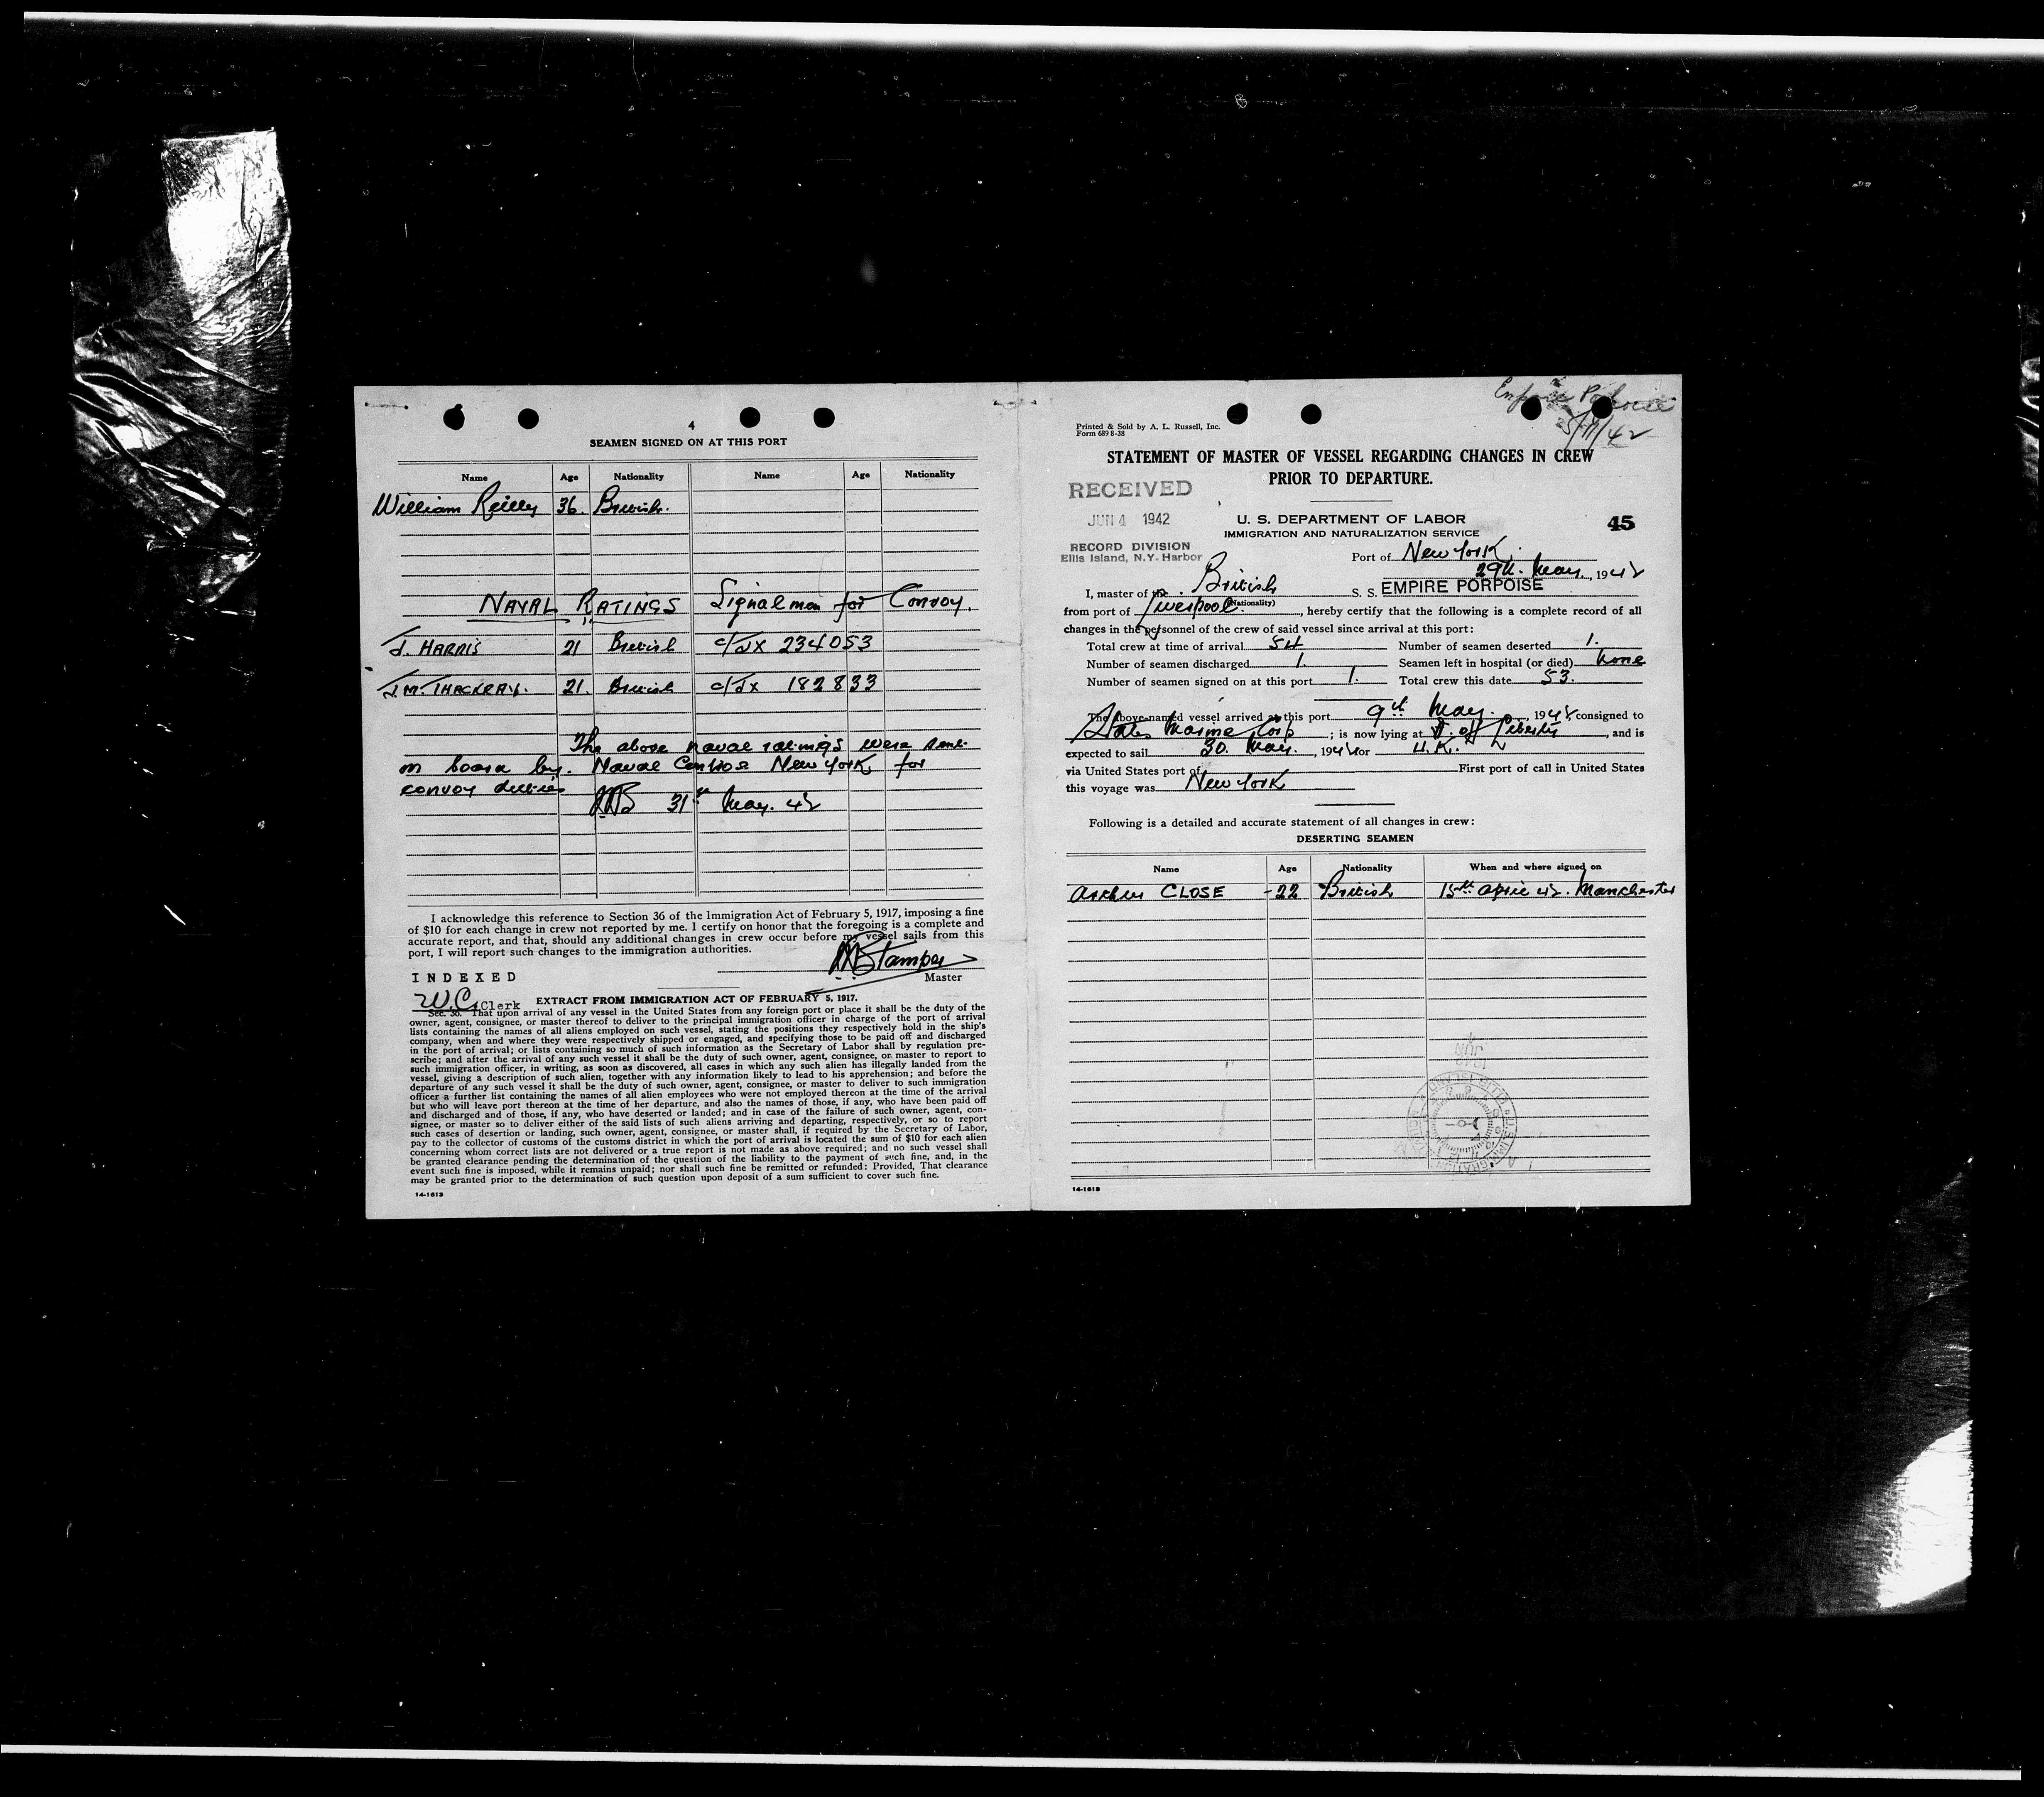 4
SEAMEN SIGNED ON AT THIS PORT
Name Age Nationality Name Age Nationality
William Reilly 36. British.
NAVAL RATINGS Signalmen for Convoy.
J. HARRIS 21 British C/JX 234053
J.M. THACKRAY. 21. British C/JX 182833
The above naval ratings were sent
on board by Naval Control New York for
convoy duties
31st May. 42
I acknowledge this reference to Section 36 of the Immigration Act of February 5, 1917, imposing a fine
of $10 for each change in crew not reported by me. I certify on honor that the foregoing is a complete and
accurate report, and that, should any additional changes in crew occur before my vessel sails from this
port, I will report such changes to the immigration authorities.
Stamper
INDEXED Master
W.C. Clerk EXTRACT FROM IMMIGRATION ACT OF FEBRUARY 5, 1917.
Sec. 36. That upon arrival of any vessel in the United States from any foreign port or place it shall be the duty of the
owner, agent, consignee, or master thereof to deliver to the principal immigration officer in charge of the port of arrival
lists containing the names of all aliens employed on such vessel, stating the positions they respectively hold in the ship's
company, when and where they were respectively shipped or engaged, and specifying those to be paid off and discharged
in the port of arrival; or lists containing so much of such information as the Secretary of Labor shall by regulation pre-
scribe; and after the arrival of any such vessel it shall be the duty of such owner, agent, consignee, or master to report to
such immigration officer, in writing, as soon as discovered, all cases in which any such alien has illegally landed from the
vessel, giving a description of such alien, together with any information likely to lead to his apprehension; and before the
departure of any such vessel it shall be the duty of such owner, agent, consignee, or master to deliver to such immigration
officer a further list containing the names of all alien employees who were not employed thereon at the time of the arrival
but who will leave port thereon at the time of her departure, and also the names of those, if any, who have been paid off
and discharged and of those, if any, who have deserted or landed; and in case of the failure of such owner, agent, con-
signee, or master so to deliver either of the said lists of such aliens arriving and departing, respectively, or so to report
such cases of desertion or landing, such owner, agent, consignee, or master shall, if required by the Secretary of Labor,
pay to the collector of customs of the customs district in which the port of arrival is located the sum of $10 for each alien
concerning whom correct lists are not delivered or a true report is not made as above required; and no such vessel shall
be granted clearance pending the determination of the question of the liability to the payment of such fine, and, in the
event such fine is imposed, while it remains unpaid; nor shall such fine be remitted or refunded: Provided, That clearance
may be granted prior to the determination of such question upon deposit of a sum sufficient to cover such fine.
14-1613
Empire Porpoise
Printed & Sold by A. L. Russell, Inc.
Form 689 8-38
STATEMENT OF MASTER OF VESSEL REGARDING CHANGES IN CREW
PRIOR TO DEPARTURE.
RECEIVED
JUN 4 1942
RECORD DIVISION
Ellis Island, N.Y. Harbor
U. S. DEPARTMENT OF LABOR 45
IMMIGRATION AND NATURALIZATION SERVICE
Port of New York.
29th. May, 1942
I, master of the British S. S. EMPIRE PORPOISE
(Nationality)
from port of Liverpool, hereby certify that the following is a complete record of all
changes in the personnel of the crew of said vessel since arrival at this port:
Total crew at time of arrival 54 Number of seamen deserted 1.
Number of seamen discharged 1. Seamen left in hospital (or died) None
Number of seamen signed on at this port 1. Total crew this date 53.
The above-named vessel arrived at this port 9th May., 1942 consigned to
States Marine Corp; is now lying at S. of Liberty, and is
expected to sail 30. May., 1942 for U.K.
via United States port of First port of call in United States
this voyage was New York
Following is a detailed and accurate statement of all changes in crew:
DESERTING SEAMEN
Name Age Nationality When and where signed on
Arthur CLOSE -22 British 15th April 42. Manchester
14-1613